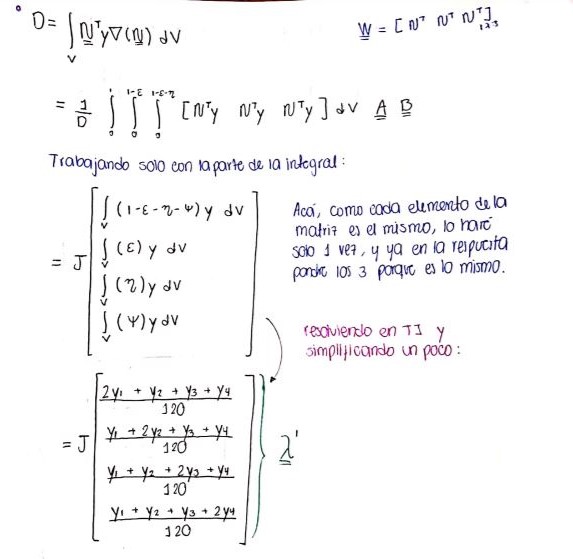 D = ∫_V N^T y ∇(N) dV
W = [ N^T N^T N^T ]_{1x3}
= 1/D ∫_0^1 ∫_0^{1-ε} ∫_0^{1-ε-η} [ N^T y N^T y N^T y ] dV A B
Trabajando solo con la parte de la integral:
= J [ ∫_V (1-ε-η-ψ) y dV
∫_V (ε) y dV
∫_V (η) y dV
∫_V (ψ) y dV ]
Acá, como cada elemento de la
matriz es el mismo, lo haré
solo 1 vez, y ya en la respuesta
pondré los 3 porque es lo mismo.
resolviendo en TI y
simplificando un poco:
= J [ (2y₁ + y₂ + y₃ + y₄)/120
(y₁ + 2y₂ + y₃ + y₄)/120
(y₁ + y₂ + 2y₃ + y₄)/120
(y₁ + y₂ + y₃ + 2y₄)/120 ] } λ'